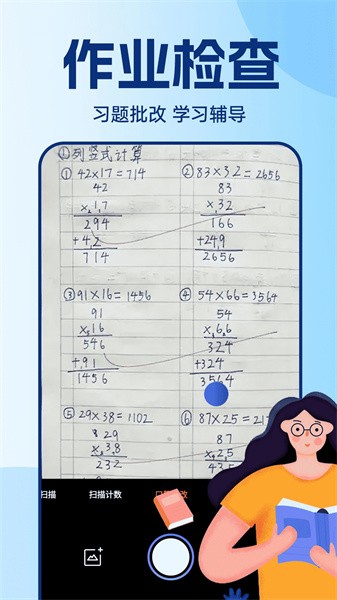 作业检查
习题批改 学习辅导
①列竖式计算
① 42×17=714
42
×17
294
+42
714
② 83×32=2656
83
×32
166
+249
2656
③ 91×16=1456
91
×16
546
+91
1456
④ 54×66=3564
54
×66
324
+324
3564
⑤ 29×38=1102
29
×38
232
⑥ 87×25=21
87
×25
435
扫描
扫描计数
口
改